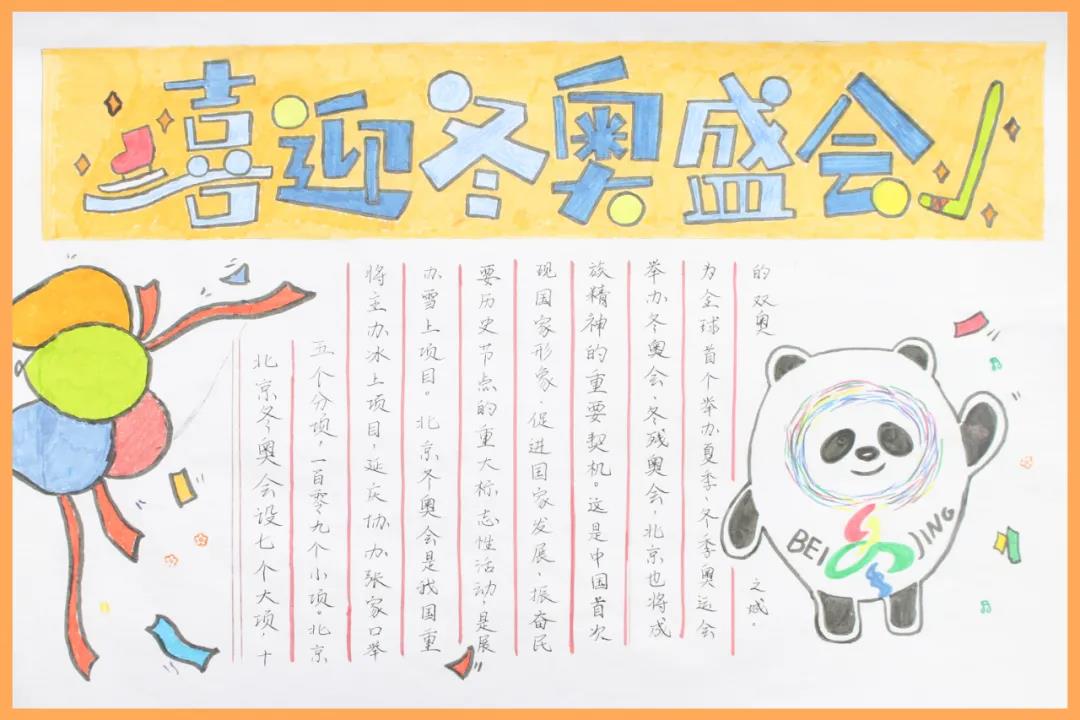 喜迎冬奥盛会
北京冬奥会设七个大项，十
五个分项，一百零九个小项。北京
将主办冰上项目，延庆协办张家口举
办雪上项目。北京冬奥会是我国重
要历史节点的重大标志性活动，是展
现国家形象、促进国家发展、振奋民
族精神的重要契机。这是中国首次
举办冬奥会、冬残奥会，北京也将成
为全球首个举办夏季、冬季奥运会
的双奥之城。
BEIJING